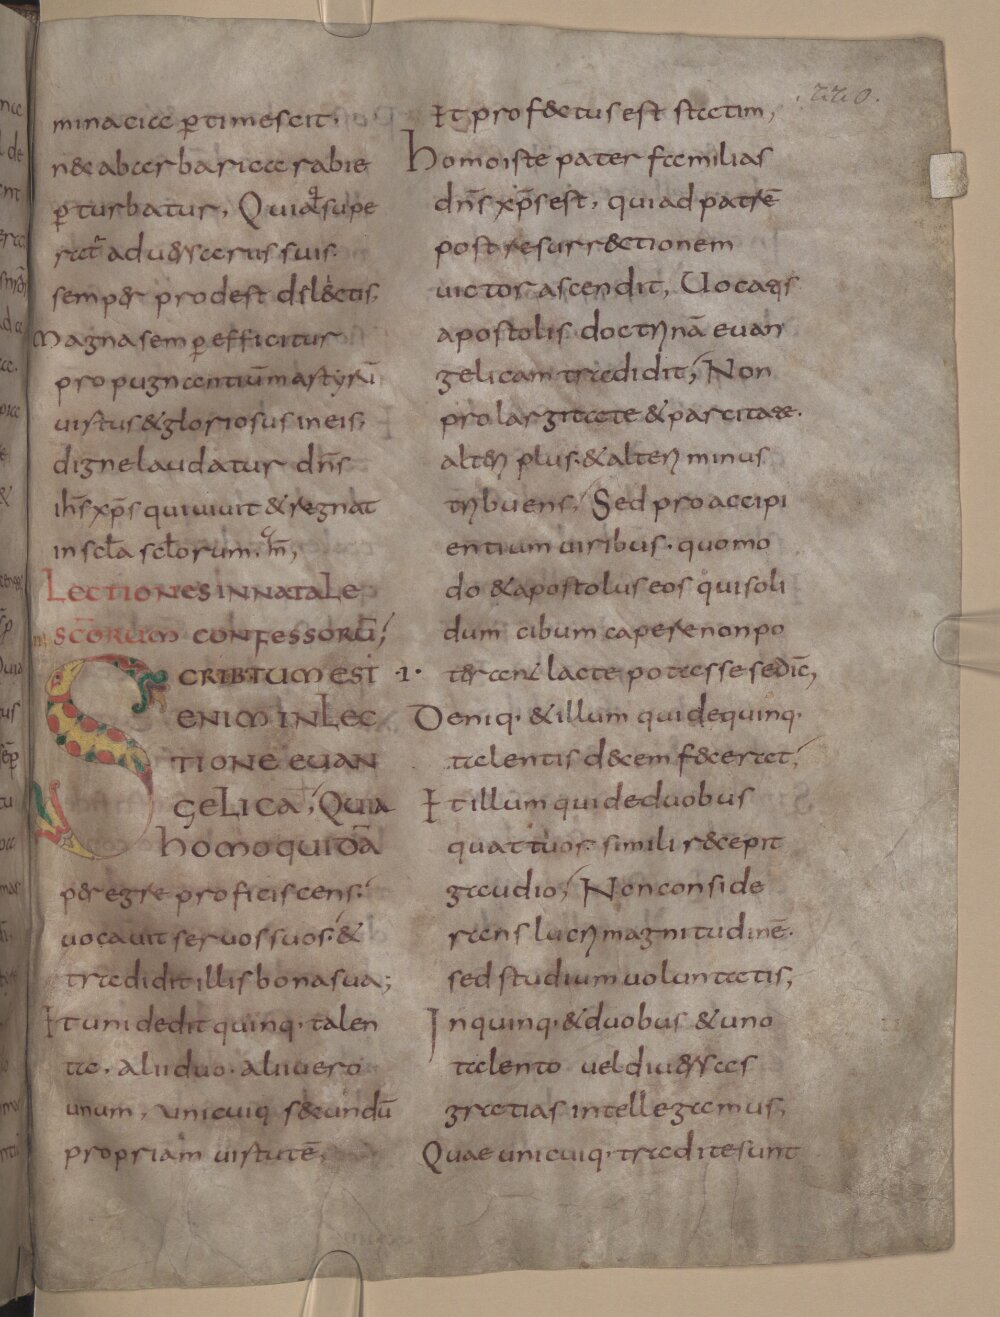 220.
minacia ptimescit.
nec ab acerba riccae rabie
pturbatur, Quia supe
rat aduersarius suis.
semper prodest dilectis,
Magna semp efficitur
propugnantium martyrū
uirtus & gloriosus in eis,
digne laudatur dn̄s
ihs̄ xp̄s qui uiuit & regnat
in sc̄la sc̄lorum. am̄;
LECTIONES IN NATALE
SC̄ORUM CONFESSORŪ;
SCRIBTUM EST .I.
ENIM IN LEC
TIONE EUAN
GELICA; QUIA
HOMO QUIDĀ
peregre proficiscens.
uocauit seruos suos. &
tradidit illis bona sua;
Et uni dedit quinq. talen
ta. alii duo. alii uero
unum, unicuiq secundū
propriam uirtutē,
Et profectus est statim,
Homo iste pater familias
dn̄s xp̄s est, qui ad patrē
post resurrectionem
uictor ascendit, Uocatis
apostolis doctrinā euan
gelicam tradidit, Non
pro largitate & parcitate.
alteri plus. & alteri minus
tribuens, Sed pro accipi
entium uiribus. quomo
do & apostolus eos qui soli
dum cibum capere non po
terant lacte potasse se dic̄,
Deniq. & illum qui de quinq.
talentis decem fecerat,
Et illum qui de duobus
quattuor simili recepit
gaudio, Non conside
rans lucri magnitudinē.
sed studium uoluntatis,
In quinq. & duobus & uno
talento uel diuersas
gratias intellegamus,
Quae unicuiq. traditae sunt